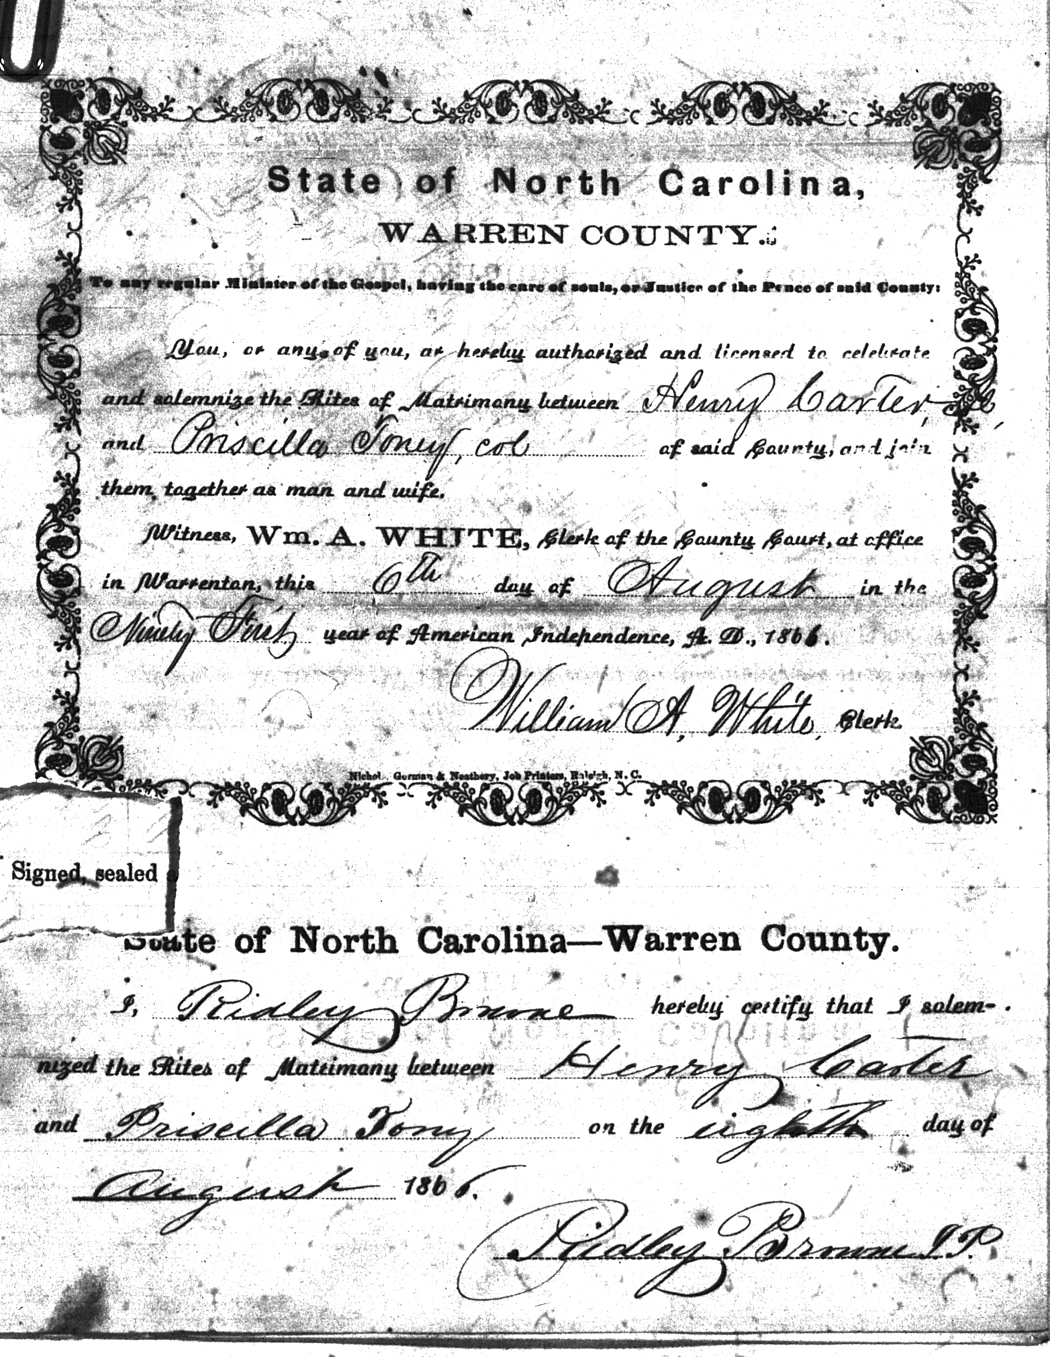 State of North Carolina,
WARREN COUNTY.
To any regular Minister of the Gospel, having the care of souls, or Justice of the Peace of said County:
You, or any of you, ar hereby authorized and licensed to celebrate
and solemnize the Rites of Matrimony between Henry Carter,
and Priscilla Toney, col of said County, and join
them together as man and wife.
Witness, Wm. A. WHITE, Clerk of the County Court, at office
in Warrenton, this 6th day of August in the
Ninety First year of American Independence, A. D., 1866.
William A. White, Clerk
Nichol Gorman & Neathery, Job Printers, Raleigh, N. C.
Signed, sealed
State of North Carolina—Warren County.
I, Ridley Browne hereby certify that I solem-
nized the Rites of Matrimony between Henry Carter
and Priscilla Tony on the eighth day of
August 1866.
Ridley Browne J.P.